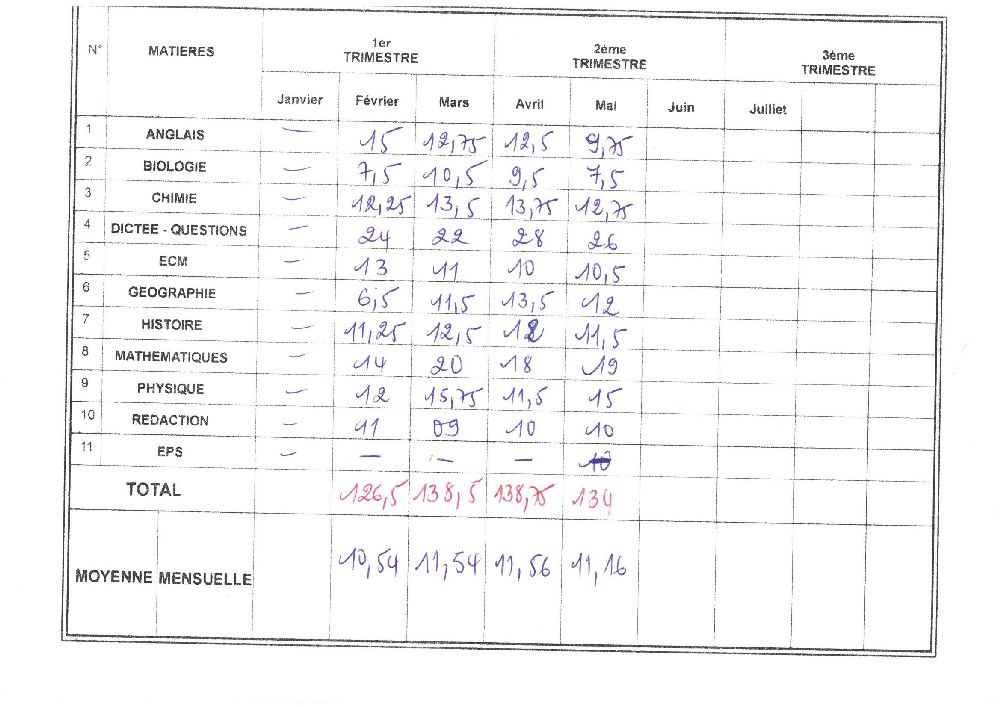 N° MATIERES 1er TRIMESTRE 2ème TRIMESTRE 3ème TRIMESTRE
Janvier Février Mars Avril Mai Juin Juillet
1 ANGLAIS — 15 12,75 12,5 9,75
2 BIOLOGIE — 7,5 10,5 9,5 7,5
3 CHIMIE — 12,25 13,5 13,75 12,75
4 DICTEE - QUESTIONS — 24 22 28 26
5 ECM — 13 11 10 10,5
6 GEOGRAPHIE — 6,5 11,5 13,5 12
7 HISTOIRE — 11,25 12,5 12 11,5
8 MATHEMATIQUES — 14 20 18 19
9 PHYSIQUE — 12 15,75 11,5 15
10 REDACTION — 11 09 10 10
11 EPS — — — — 10
TOTAL 126,5 138,5 138,75 134
MOYENNE MENSUELLE 10,54 11,54 11,56 11,16